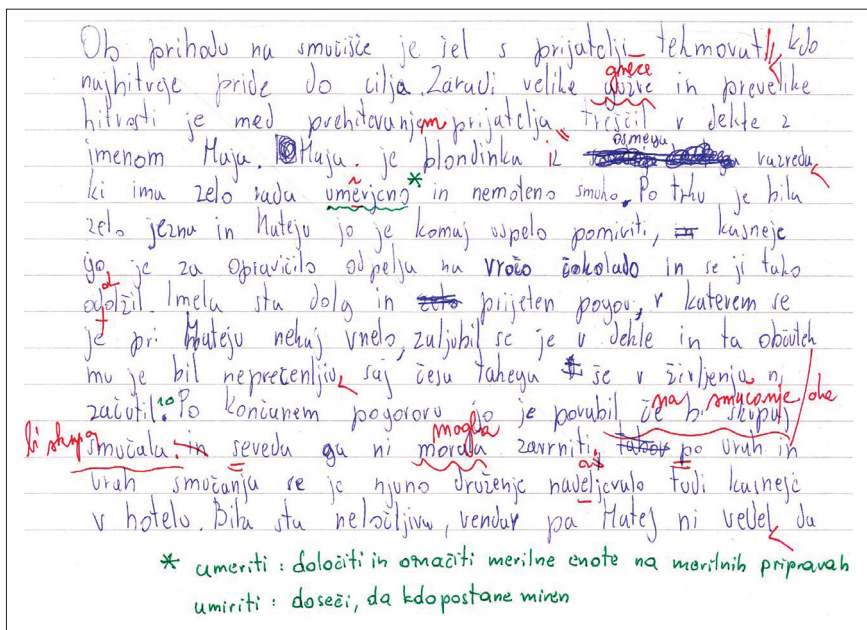 Ob prihodu na smučišče je šel s prijatelji tekmovat, kdo
najhitreje pride do cilja. Zaradi velike gneče guzve in prevelike
hitrosti je med prehitevanjem prijatelja treščil v dekle z
imenom Maja. Maja je blondinka iz osmega razreda,
ki ima zelo rada umerjeno * in nemoteno smuko. Po trku je bila
zelo jezna in Mateju jo je komaj uspelo pomiriti, kasneje
jo je za opravičilo odpelja na vročo čokolado in se ji tako
odolžil. Imela sta dolg in zelo prijeten pogovor, v katerem se
je pri Mateju nekaj vnelo, zaljubil se je v dekle in ta občutek
mu je bil neprecenljiv, saj česa takega še v življenja ni
začutil. to Po končanem pogovoru jo je povabil če bi skupaj na smučanje, da
bi skupaj smučala. in seveda ga ni morala mogla zavrniti. po urah in
urah smučanja se je njuno druženje nadeljevalo tudi kasneje
v hotelu. Bila sta neločljiva, vendar pa Matej ni vedel da
* umeriti : določiti in označiti merilne enote na merilnih pripravah
umiriti : doseči, da kdo postane miren